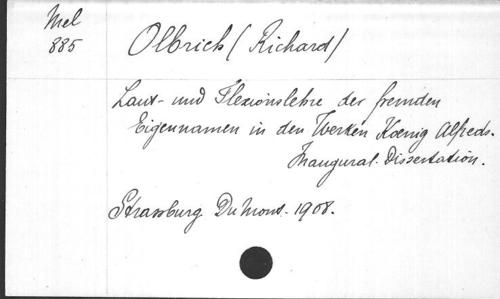 Mel
885
Olbrich (Richard)
Laut- und Flexionslehre der fremden
Eigennamen in den Werken Kœnig Alfreds.
Inaugural-Dissertation.
Strassburg. Du Mont. 1908.